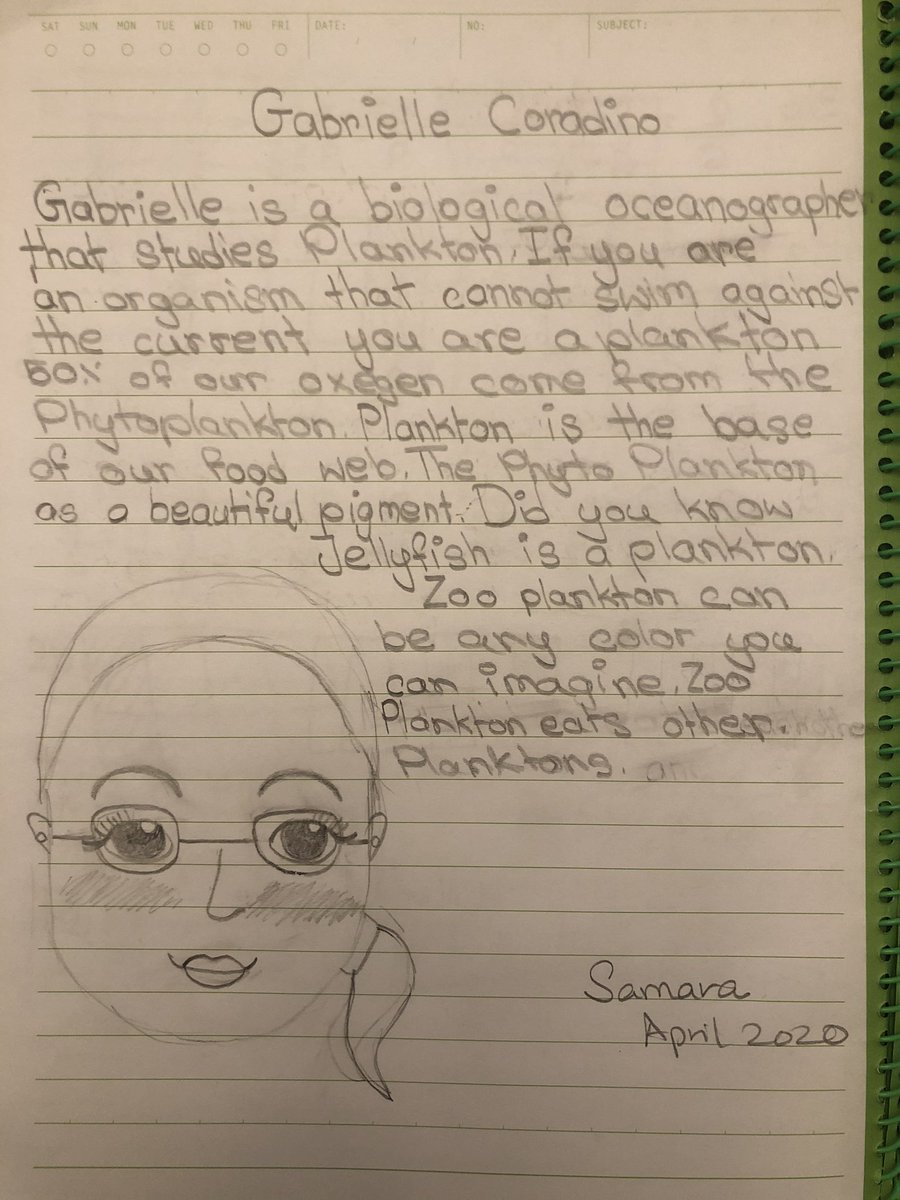 SAT SUN MON TUE WED THU FRI DATE: NO: SUBJECT:
Gabrielle Coradino
Gabrielle is a biological oceanographer
that studies Plankton. If you are
an organism that cannot swim against
the current you are a plankton
50% of our oxegen come from the
Phytoplankton. Plankton is the base
of our food web. The Phyto Plankton
as a beautiful pigment. Did you know
Jellyfish is a plankton.
Zoo plankton can
be any color you
can imagine. Zoo
Plankton eats other.
Planktons.
Samara
April 2020